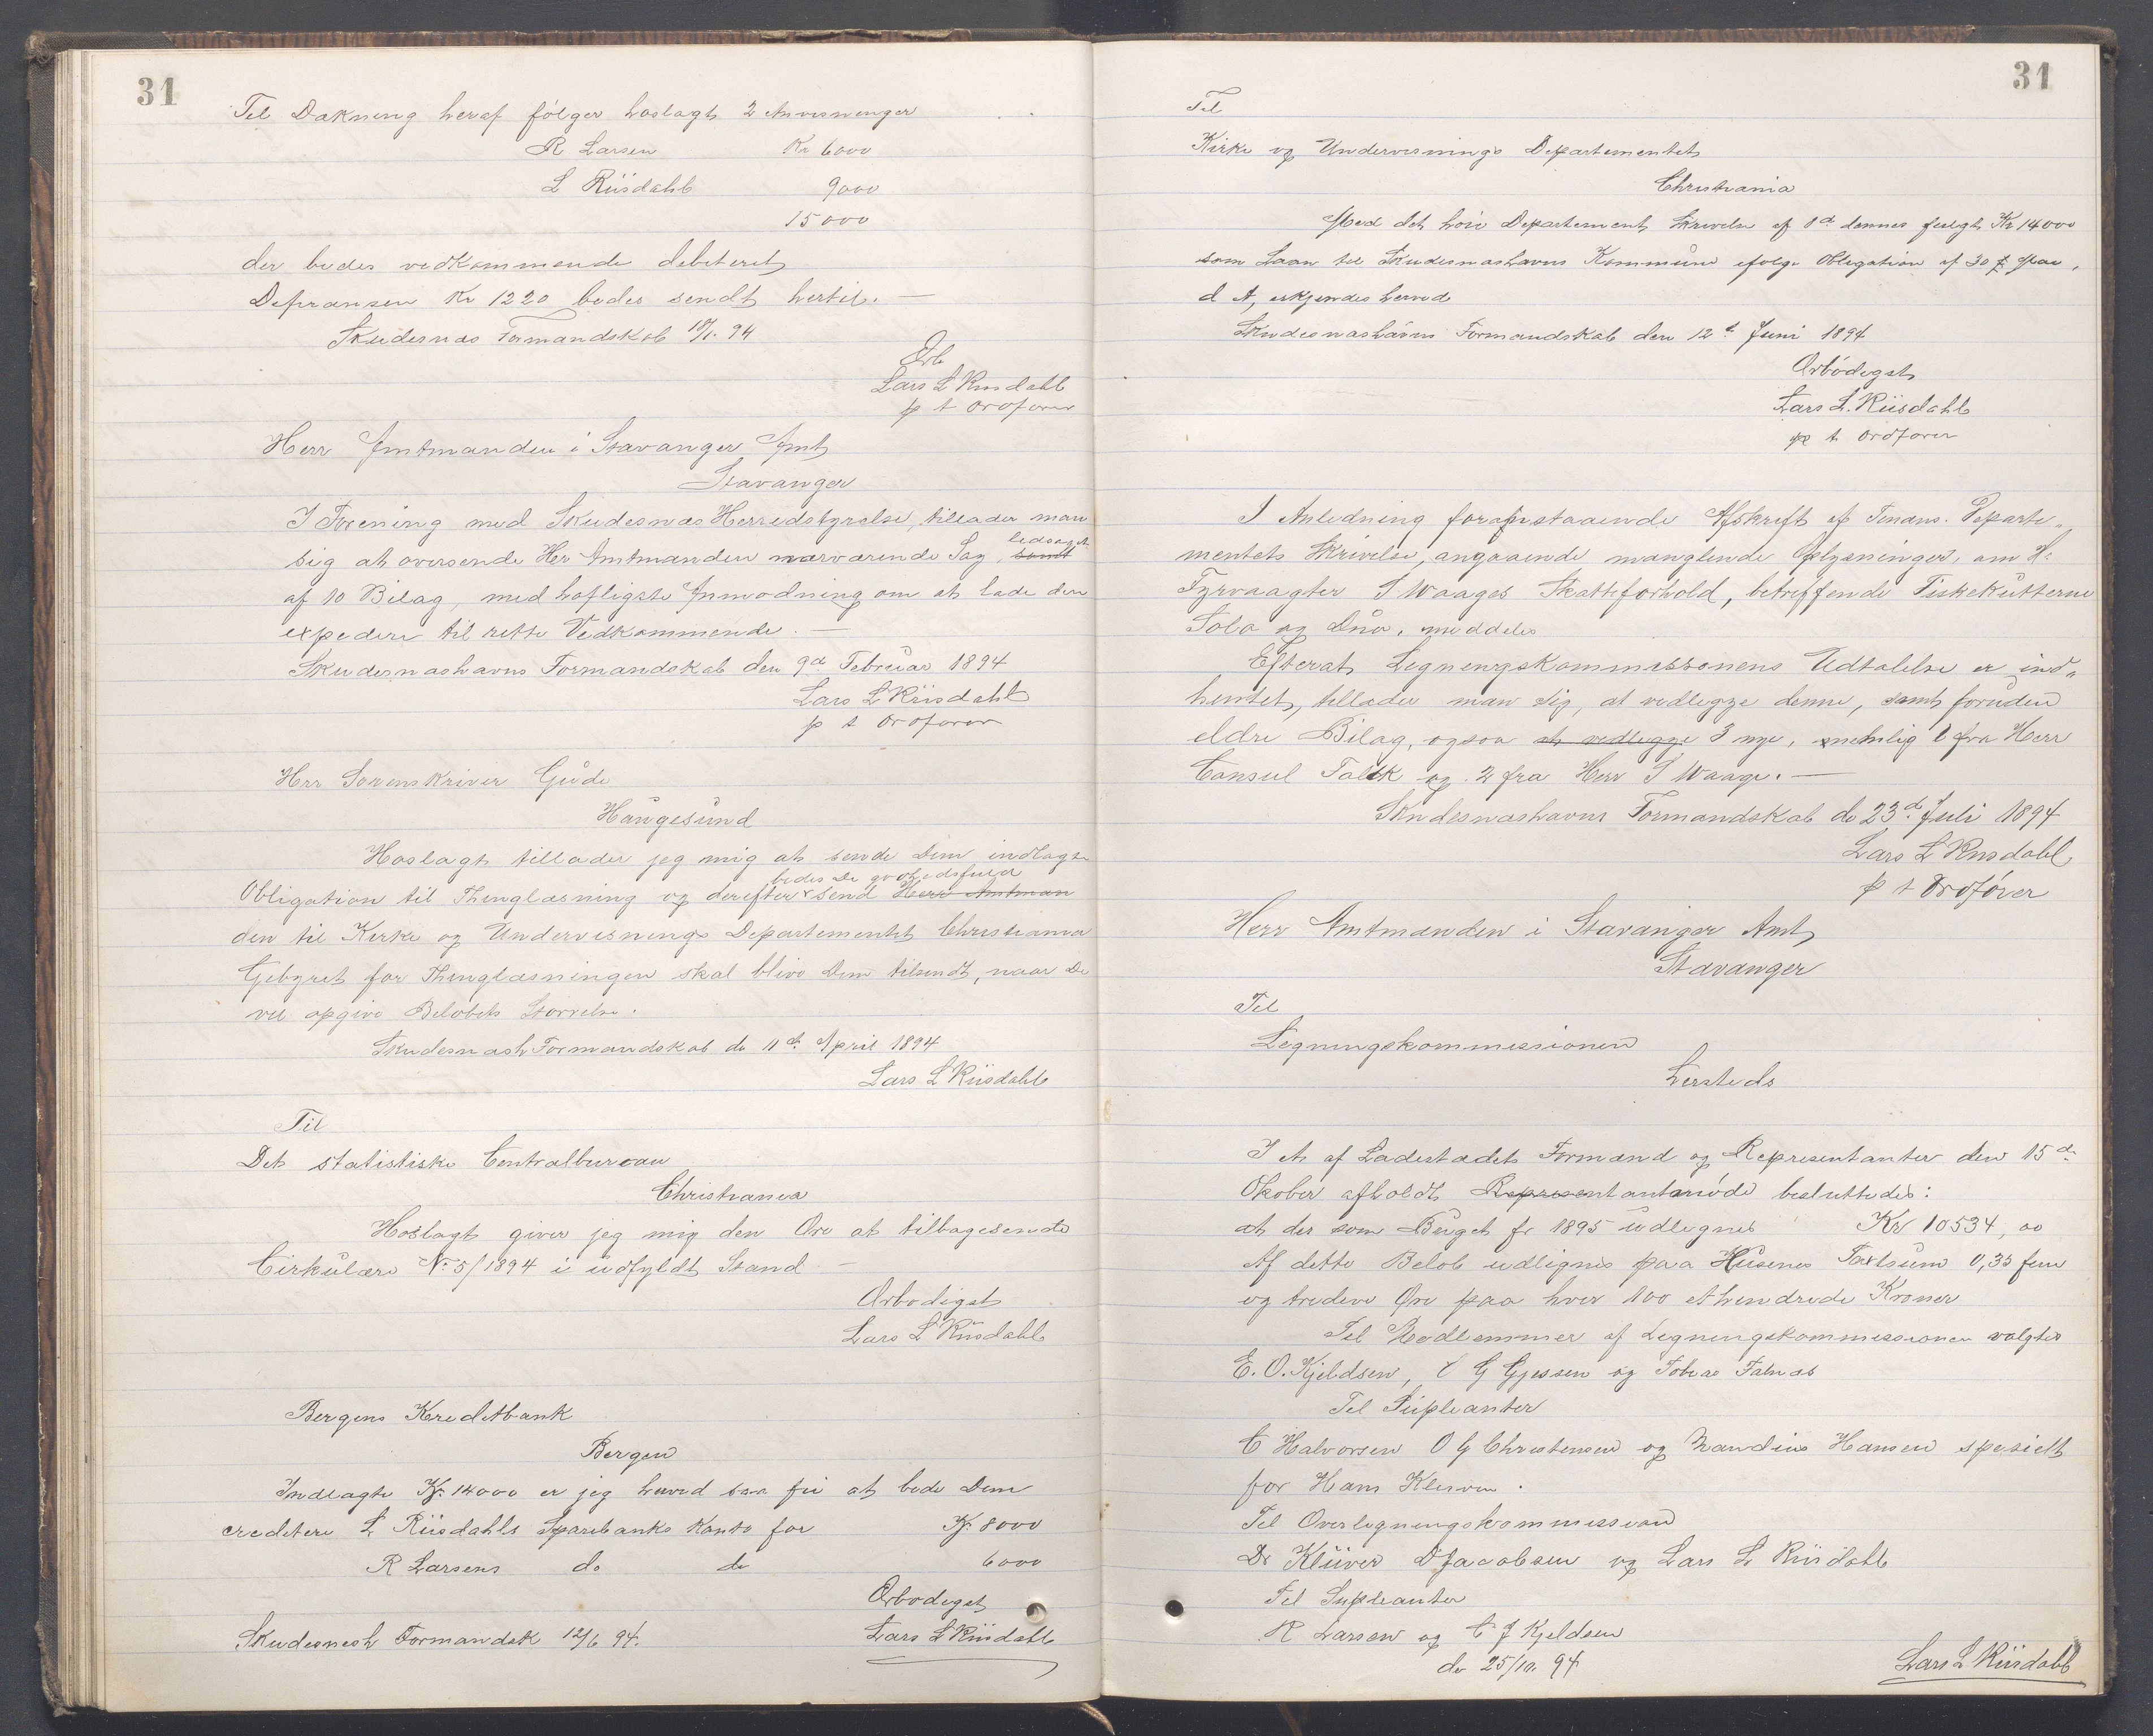 31
Til Dækning heraf følger hoslagt 2 Anvisninger
R Larsen Kr 6000
L Riisdahl 9000
15000
der bedes vedkommende debiteret
Defransen Kr 1220 bedes sendt hertil. —
Skudesnæs Formandskab 18/1. 94
Erb
Lars L Riisdahl
p t Ordfører
Herr Amtmanden i Stavanger Amt
Stavanger
I Forening med Skudesnæs Herredstyrelse, tillader man
sig at oversende Her Amtmanden nærværende Sag, samt ledsaget
af 10 Bilag, med høfligste Anmodning om at lade den
expedere til rette Vedkommende. —
Skudesnæshavns Formandskab den 9d Februar 1894
Lars L Riisdahl
p t Ordfører
Herr Sorenskriver Gude
Haugesund
Hoslagt tillader jeg mig at sende Dem indlagte
Obligation til Thinglæsning og derefter bedes De godhedsfuld send Herr Amtman
den til Kirke og Undervisnings Departementet Christiania
Gebyret for Thinglæsningen skal blive Dem tilsendt, naar De
vil opgive Beløbets Størrelse.
Skudesnæsh Formandskab de 11d April 1894
Lars L Riisdahl
Til
Det statistiske Centralbureau
Christiania
Hoslagt giver jeg mig den Ære at tilbagesende
Cirkulære No 5/1894 i udfyldt Stand —
Ærbødigst
Lars L Riisdahl
Bergens Kreditbank
Bergen
Indlagte Kr. 14000 er jeg herved saa fri at bede Dem
creditere L Riisdahls Sparebanks Konto for Kr. 8000
R Larsens do do 6000
Ærbødigst
Skudesnesh Formandsk 12/6 94. Lars L Riisdahl
31
Til
Kirke og Undervisnings Departementet
Christiania
Med det høie Departement Skrivelse af 8d dennes fulgt Kr 14000
som Laan til Skudesnæshavns Kommune ifølge Obligation af 30 f Mai,
d A, erkjendes herved
Skudesnæshavns Formandskab den 12t Juni 1894
Ærbødigst
Lars L. Riisdahl
p t Ordfører
I Anledning foranstaaende Afskrift af Finans. Departe„
mentets Skrivelse, angaaende manglende Oplysninger, om Hr
Fyrvaagter I Waages Skatteforhold, betreffende Fiskekutterne
Sola og Duo, meddeles
Efterat Legningskommissionens Udtalelse er ind„
hentet, tillader man sig, at vedlegge denne, samt foruden
eldre Bilag, ogsaa at vedlegge 3 nye, nemlig 1 fra Herr
Consul Falck og 2 fra Herr I Waage. —
Skudesnæshavns Formandskab de 23d Juli 1894
Lars L Riisdahl
p t Ordfører
Herr Amtmanden i Stavanger Amt
Stavanger
Til
Legningskommissionen
hersteds
I et af Ladestedets Formænd og Representanter den 15de
Okober afholdt Representantmøde besluttedes:
at der som Buget fr 1895 udlegnes Kr 10534,00
Af dette Beløb udlignes paa Husenes Taxtsum 0,35 fem
og tredeve Øre paa hver 100 ethundrede Kroner
Til Medlemmer af Legningskommissionen valgtes
E. O. Kjeldsen, C G Gjessen og Tobias Falnæs
Til Supleanter
C Halvorsen O G Christensen og Nandius Hansen spesielt
for Hans
Til Overlegningskommission
Dr Klüver D Jacobsen og Lars L Riisdahl
Til Supleanter
R Larsen og C J Kjeldsen
de 25/10. 94
Lars L Riisdahl